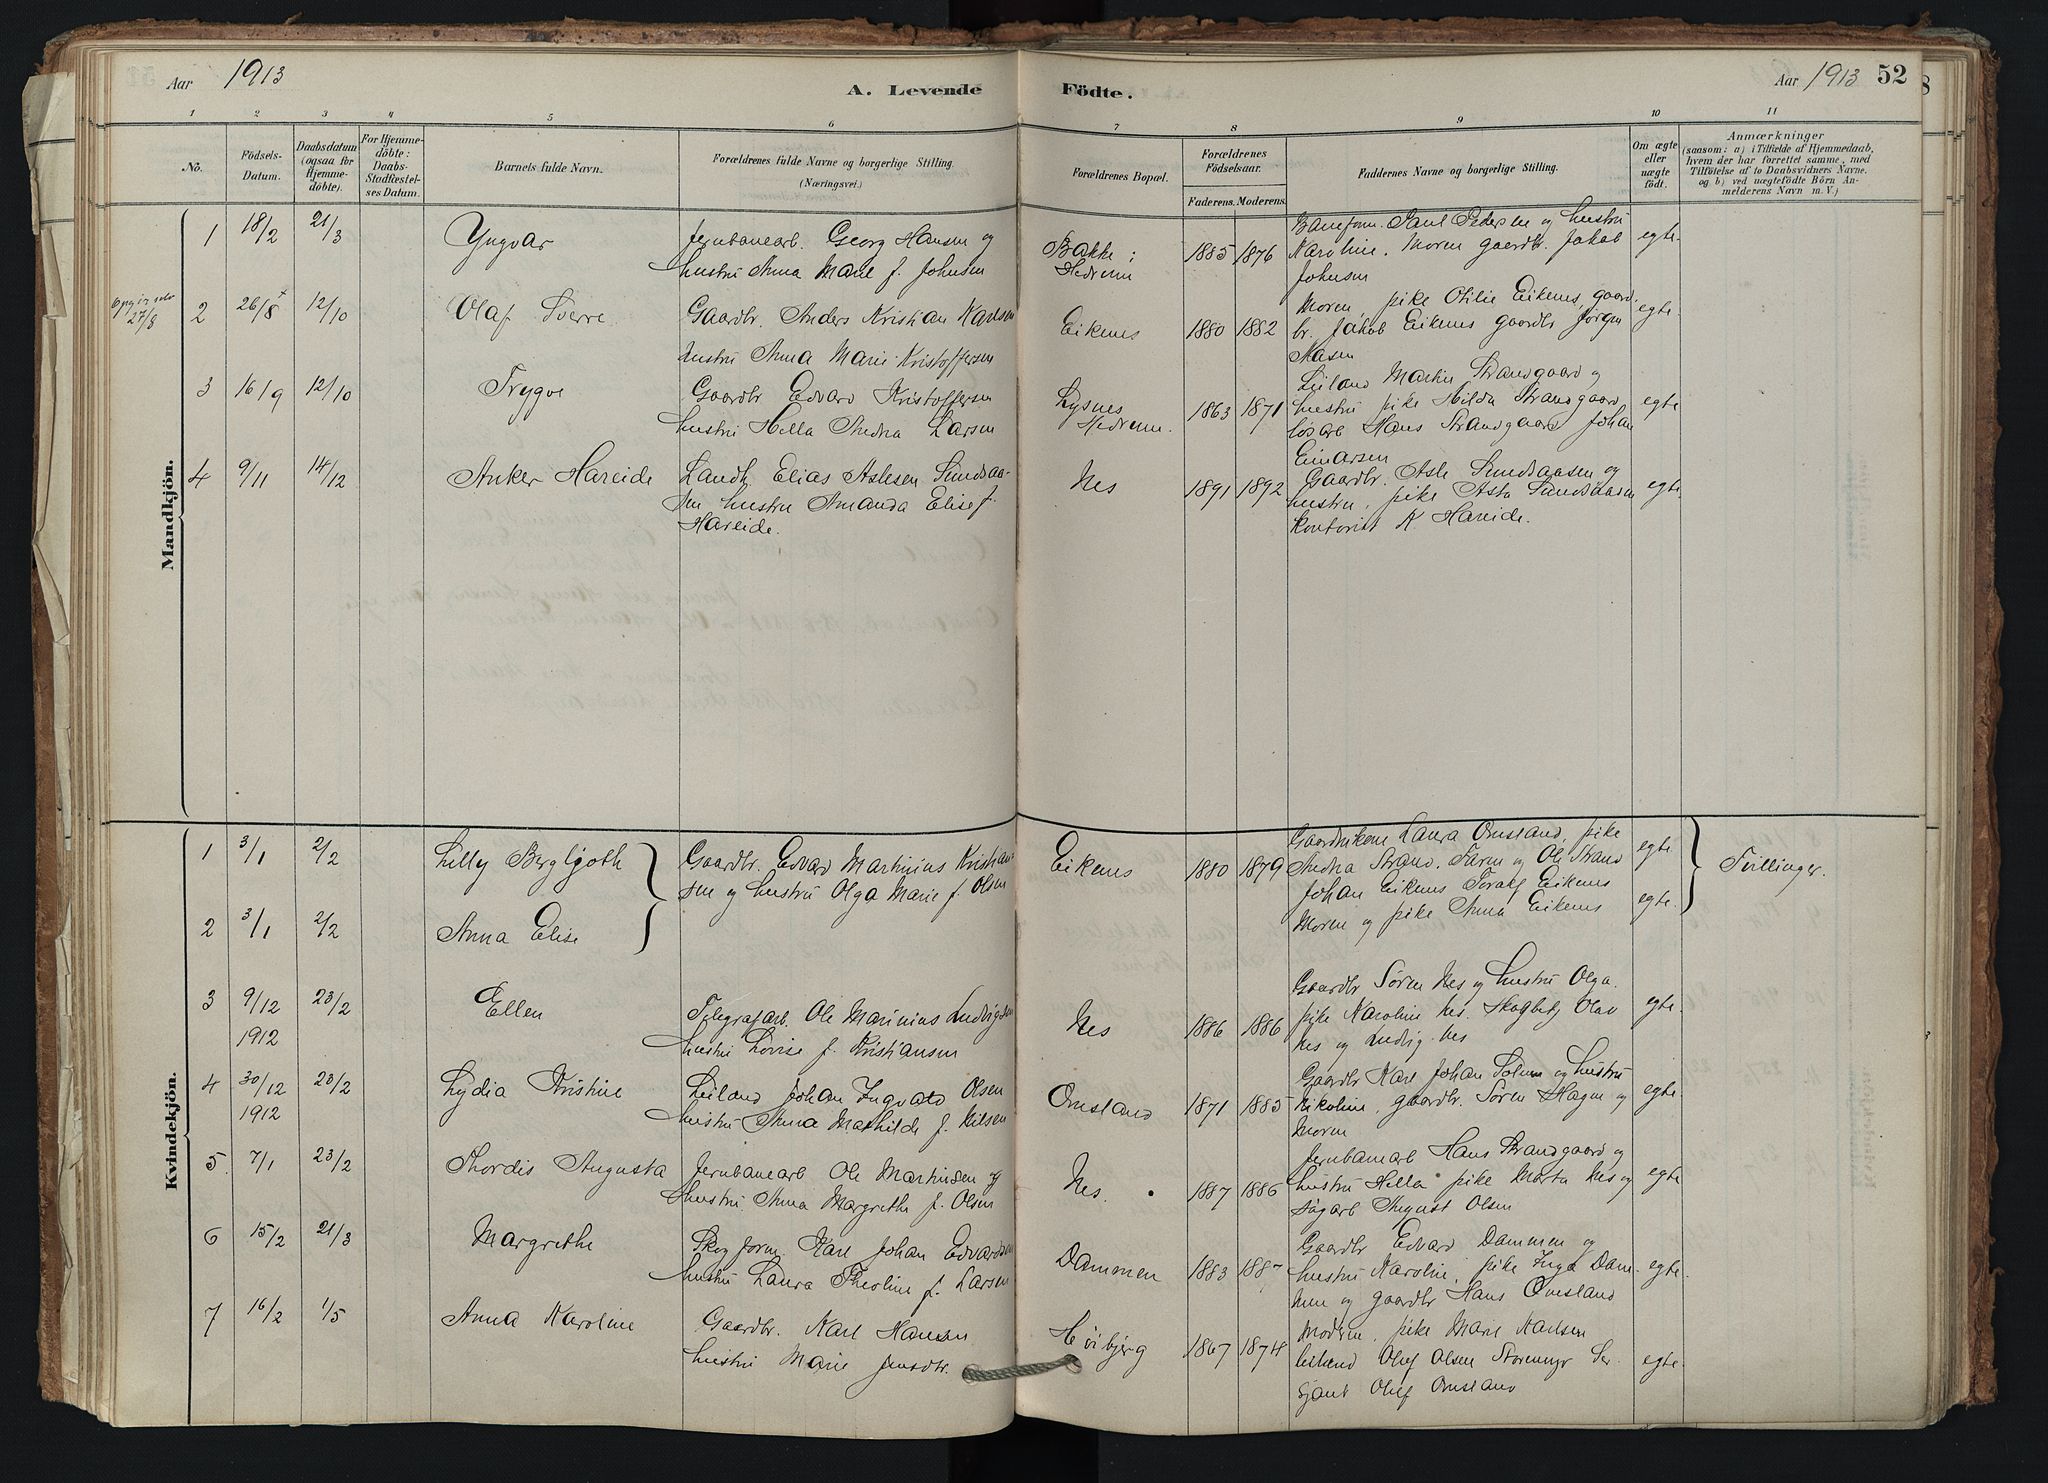 Aar 1913
A. Levende Födte.
Aar 1913 52
1 2 3 4 5 6 7 8 9 10 11
No.
Födsels-
Datum.
Daabsdatum
(ogsaa for
Hjemme-
döbte).
For Hjemme-
döbte:
Daabs-
Stadfæstel-
ses Datum.
Barnets fulde Navn.
Forældrenes fulde Navne og borgerlige Stilling.
(Næringsvei.)
Forældrenes Bopæl.
Forældrenes
Födselsaar.
Faderens. Moderens.
Faddernes Navne og borgerlige Stilling.
Om ægte
eller
nægte
födt.
Anmærkninger
(saasom: a) i Tilfælde af Hjemmedaab,
hvem der har forrettet samme, med
Tilföielse af to Daabsvidners Navne,
og b) ved uægtefödte Börn An-
melderens Navn m. V.)
Mandkjön.
1 18/2 21/3 Yngvar
Jernbanearb. Georg Hansen og
hustru Anna Marie f. Johnsen
Bakke i
Hedrum
1885 1876
Baneform. Paul Pedersen og hustru
Karoline. Moren gaardbr. Jakob
Johnsen
egte
27/8
2 26/8 12/10 Olaf Sverre
Gaardbr. Anders Kristian Karlsen
hustru Anna Marie Kristoffersen
Eikenes 1880 1882
Moren, pike Otilie Eikenes, gaard-
br. Jakob Eikenes gaardbr Jörgen
egte
3 16/9 12/10 Trygve
Gaardbr Edvard Kristoffersen
hustru Hella Andrea Larsen
Lysnes
Hedrum.
1863 1871
Leiland Martin Strandgaard og
hustru pike Hilda Strandgaard,
lösarb Hans Strandgaard Johan
Einarsen
egte
4 9/11 14/12 Anker Hareide
Landh. Elias Aslesen Sundsaa-
sen hustru Amanda Elise f.
Hareide.
Nes 1891 1892
Gaardbr. Asle Sundsaasen og
hustru, pike Asta Sundsaasen
kontorist K Hareide.
egte
Kvindekjön.
1 3/1 2/2 Lilly Bergljoth
Gaardbr. Edvard Martinius Kristian-
sen og hustru Olga Marie f Olsen
Eikenes 1880 1879
Laura Omsland, pike
Andrea Strand. Faren og Ole Strand
Johan Eikenes Toralf Eikenes
Moren og pike Anna Eikenes
egte
Tvillinger.
2 3/1 2/2 Anna Elise
egte
3 9/12 1912 23/2 Ellen
Telegrafarb. Ole Marinius Ludvigsen
hustru Lovise f. Kristiansen
Nes 1886 1886
Gaardbr Sören Nes og hustru Olga.
pike Karoline Nes. Skogbetj Olav
Nes og Ludvig Nes
egte
4 30/12 1912 23/2 Lydia Kristine
Leiland Johan Ingvald Olsen
hustru Anna Mathilde f. Nilsen
Omsland 1871 1885
Gaardbr Karl Johan Solum og hustru
Nikoline, gaardbr. Sören Hagen og
Moren
egte
5. 7/1 23/2 Thordis Augusta
Jernbanearb Ole Martinsen og
hustru Anna Margrethe f. Olsen
Nes. 1887 1886
Jernbanearb Hans Strandgaard og
hustru Hella pike Marta Nes og
sagarb August Olsen
egte
6 15/2 21/3 Margrethe
Skogform. Karl Johan Edvardsen
hustru Laura Theoline f. Larsen
Dammen 1883 1887
Gaardbr Edvard Dammen og
hustru Karoline, pike Inga Dam-
men og gaardbr Hans Omsland
egte
7 16/2 1/5 Anna Karoline
Gaardbr. Karl Hansen
hustru Marie Jensdtr.
Höibjerg 1867 1874
Moderen, pike Marie Karlsen
leiland Oluf Olsen Storemyr Ser-
sjant Oluf Omsland
egte